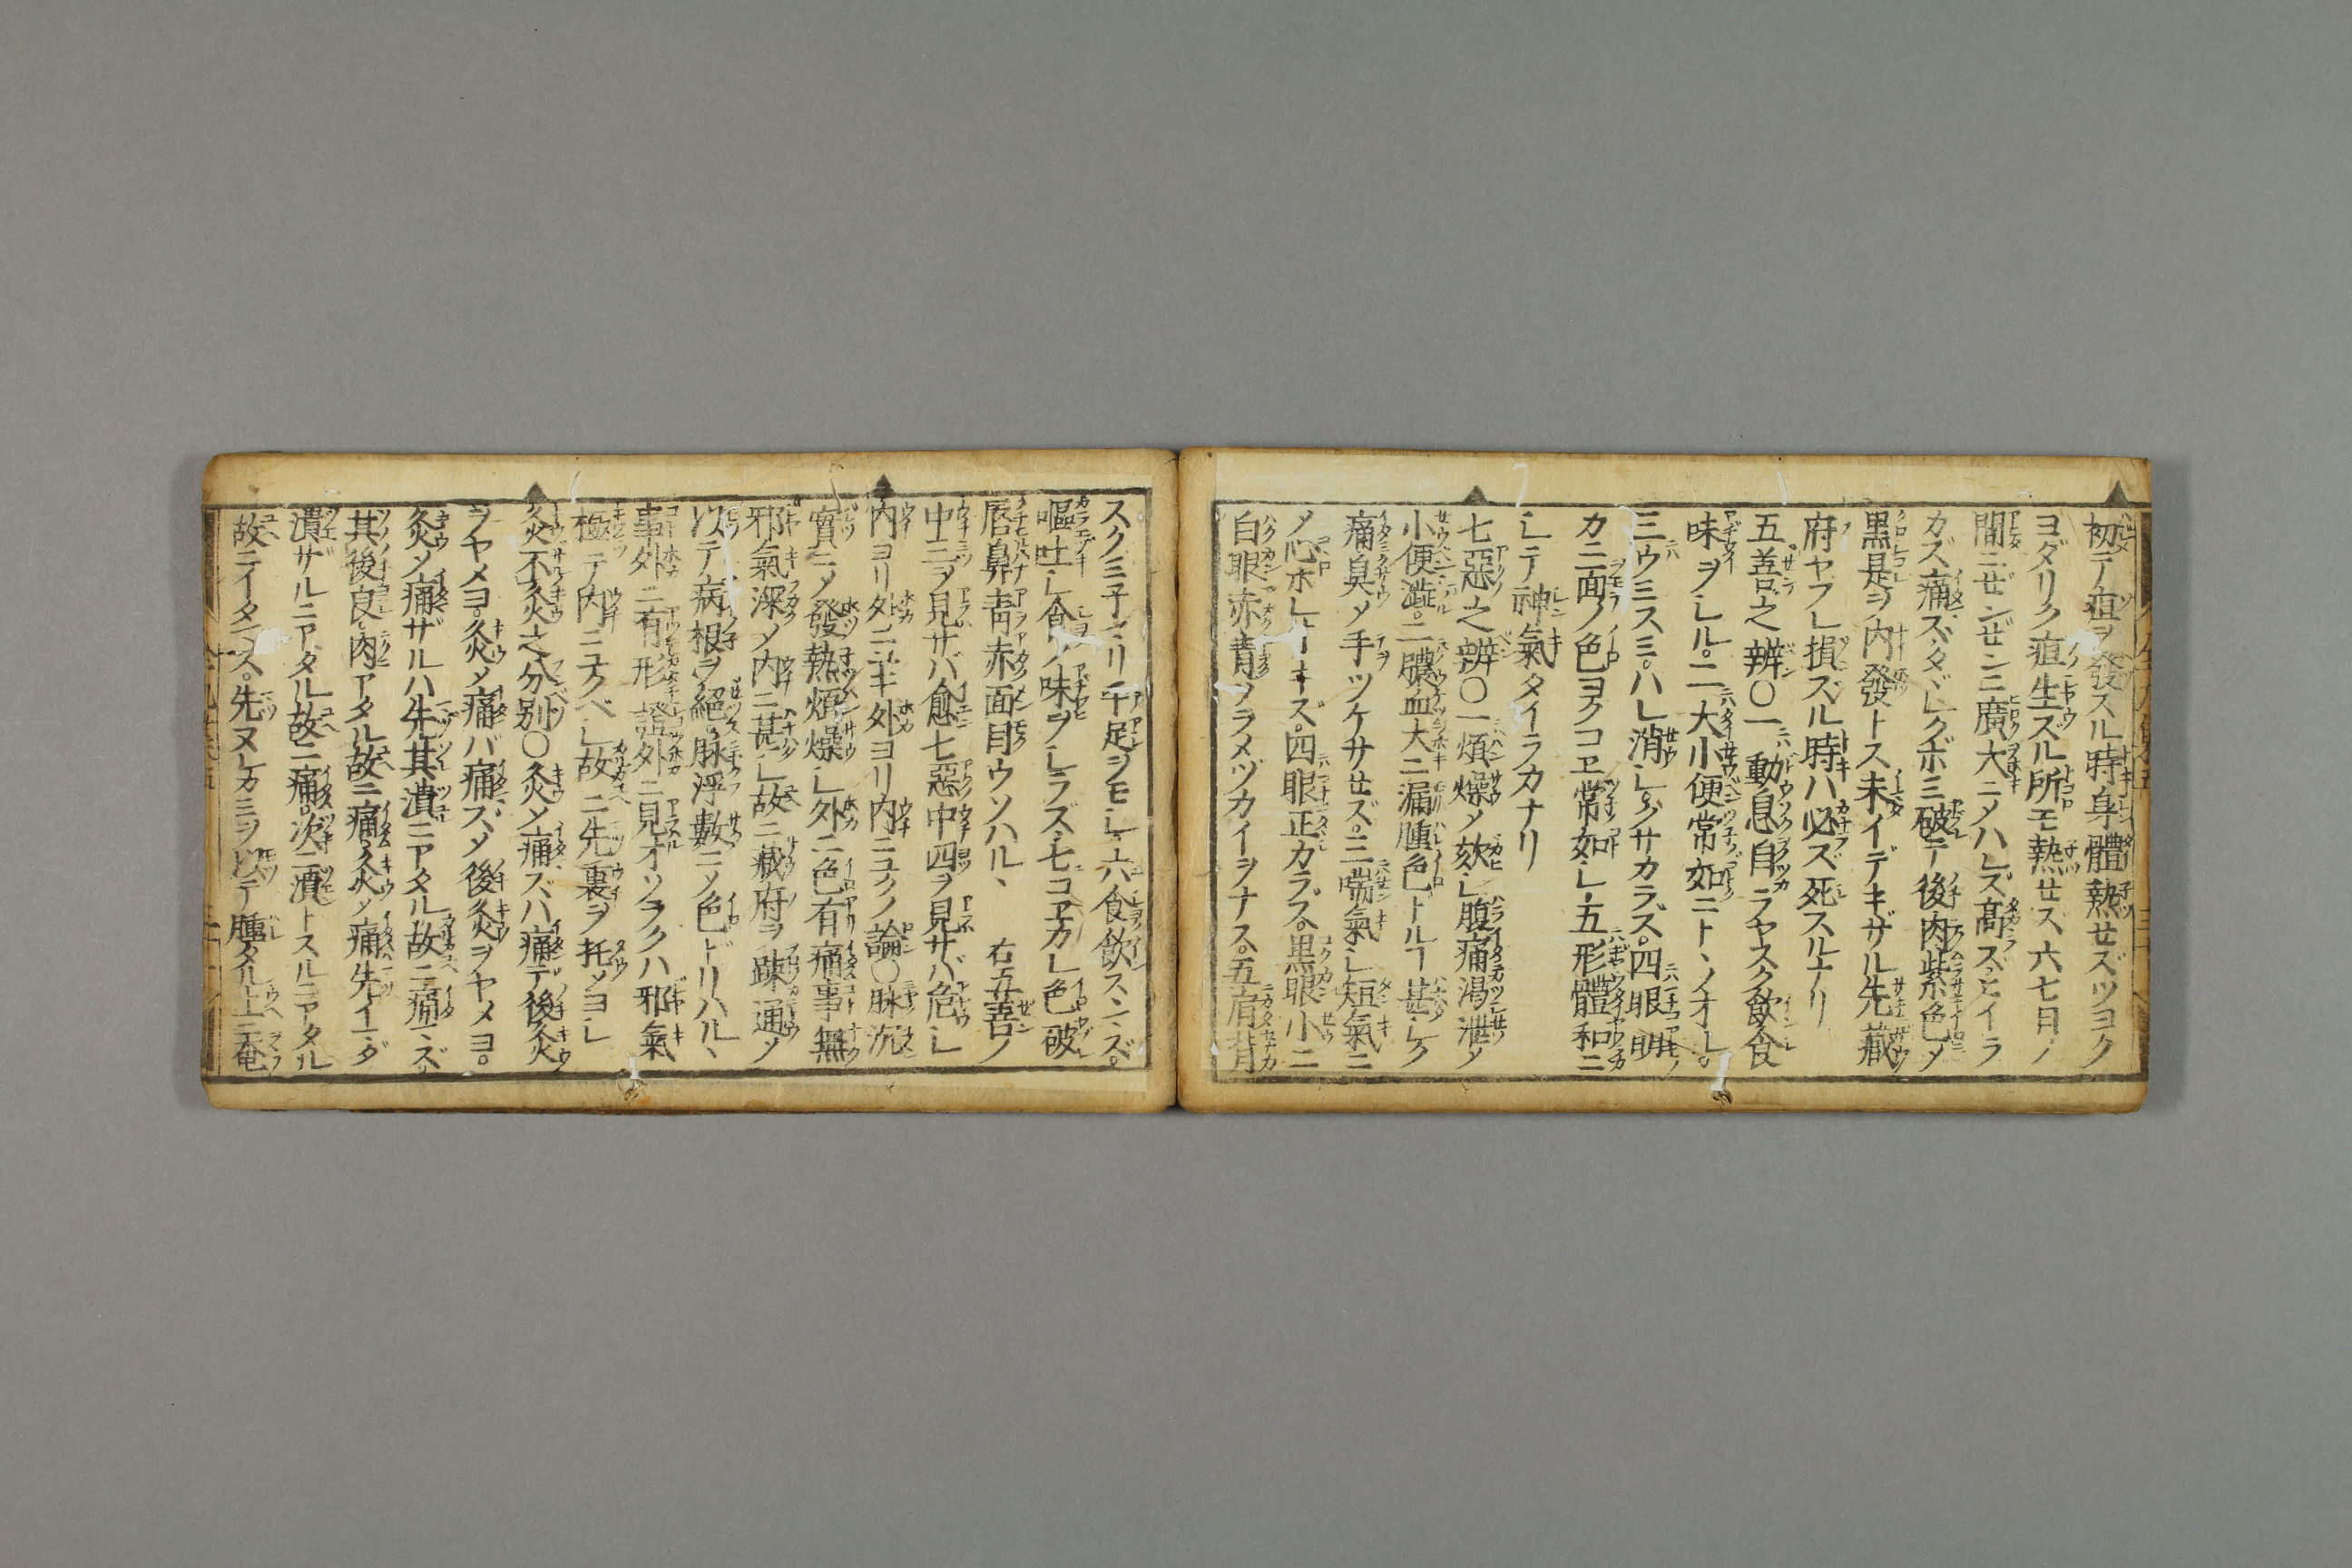 初テ疽ヲ發スル時身體熱セズツヨク
ヨダリク疽生スル所モ熱セズ六七日ノ
間ニゼンゼンニ廣大ニメハレズ高ズヒイラ
カズ痛ズタヾレクボミ破テ後肉紫色メ
黒是ヲ内發トス未イデキザル先藏
府ヤブレ損ズル時ハ必ズ死スルナリ
五善之辨〇一動息自ラヤスク飲食
味ヲシル。二大小便常如ニトヽノオレ。
三ウミスミ。ハレ消シサカラズ。四眼明
カニ面ノ色ヨクコヱ常如レ五形體和ニ
シテ神氣タイラカナリ
七惡之辨〇一煩燥メ欬シ腹痛渇泄メ
小便澁。二膿血大ニ漏腫色ドルコ甚シク
痛臭メ手ツケササズ。三喘氣シ短氣ニ
メ心ホレ キズ。四眼正カラズ。黒眼小ニ
白眼赤青ヲラメヅカイヲナス。五肩背
スクミ子 リ手足シモレ。六食飲スヽンズ。
嘔吐シ食ノ味ヲシラズ七コヱカレ色破
唇鼻青赤面目ウソハルヽ 右五善ノ
中三ヲ見サバ愈七惡中四ヲ見サバ危シ
内ヨリ外ニユキ外ヨリ内ニユクノ論〇脉沉
實ニメ發熱煩燥シ外ニ色有痛事無
邪氣深メ内ニ甚シ故ニ藏府ヲ踈通メ
以テ病根ヲ絕脉浮數ニソ色ドリハルヽ
事外ニ有形證外ニ見オソラクハ邪氣
極テ内ニユクベシ故ニ先裏ヲ托ソヨレ
灸不灸之分別〇灸メ痛ズハ痛デ後灸
ヲヤメヨ。灸メ痛バ痛ズメ後灸ヲヤメヨ。
灸メ痛ザルハ先其潰ニアタル故ニ痛マズ
其後良肉アタル故ニ痛灸メ痛先イマダ
潰ザルニアタル故ニ痛。次ニ潰トスルニアタル
故ニイタマズ。先ヌレカミヲ以テ腫タル上ニ奄